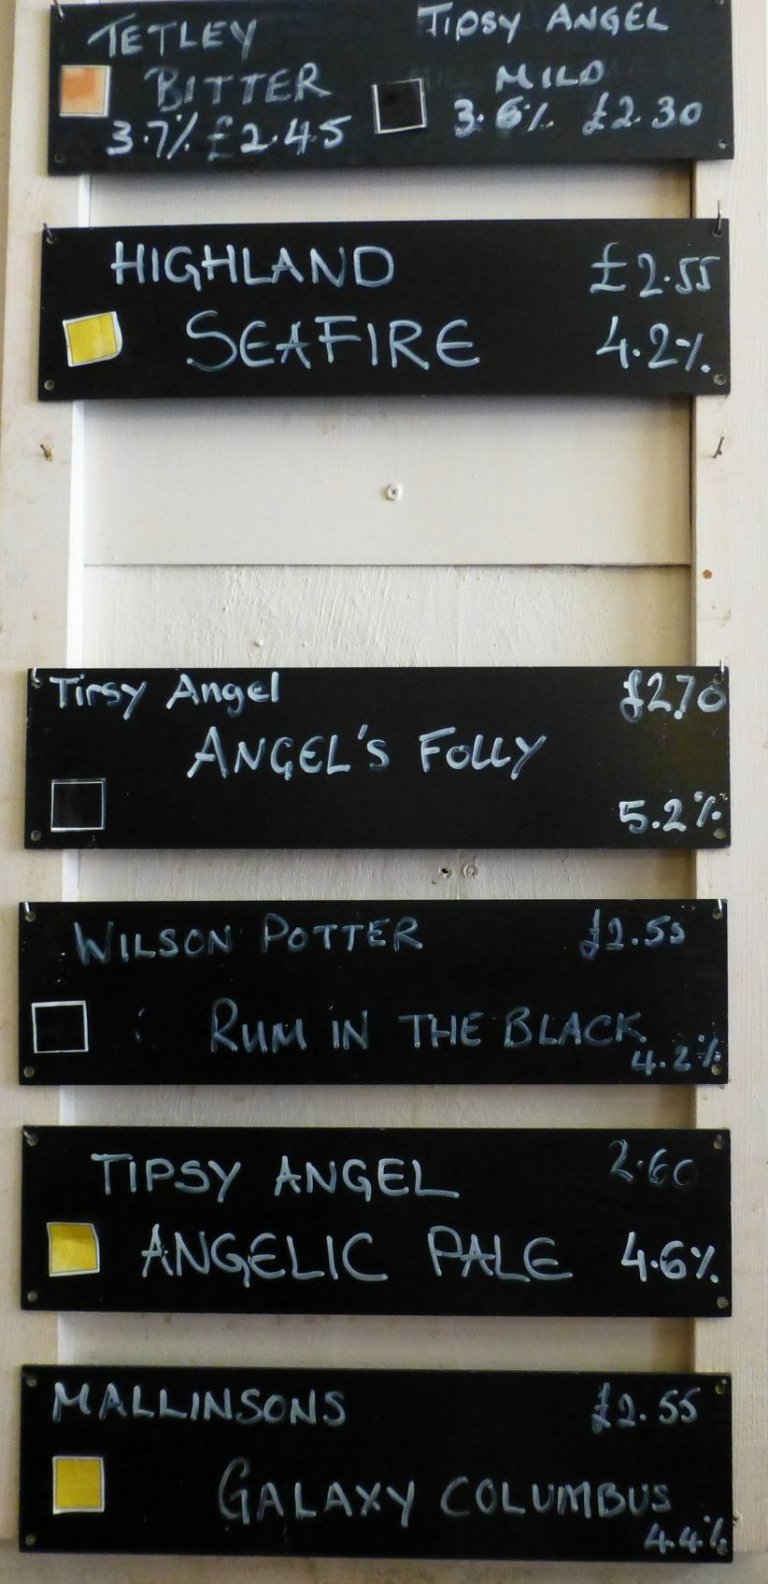 TETLEY
BITTER
3.7% £2.45
TIPSY ANGEL
MILD
3.6% £2.30
HIGHLAND £2.55
SEAFIRE 4.2%
Tipsy Angel £2.70
ANGEL'S FOLLY
5.2%
WILSON POTTER £2.55
RUM IN THE BLACK
4.2%
TIPSY ANGEL 2.60
ANGELIC PALE 4.6%
MALLINSONS £2.55
GALAXY COLUMBUS
4.4%